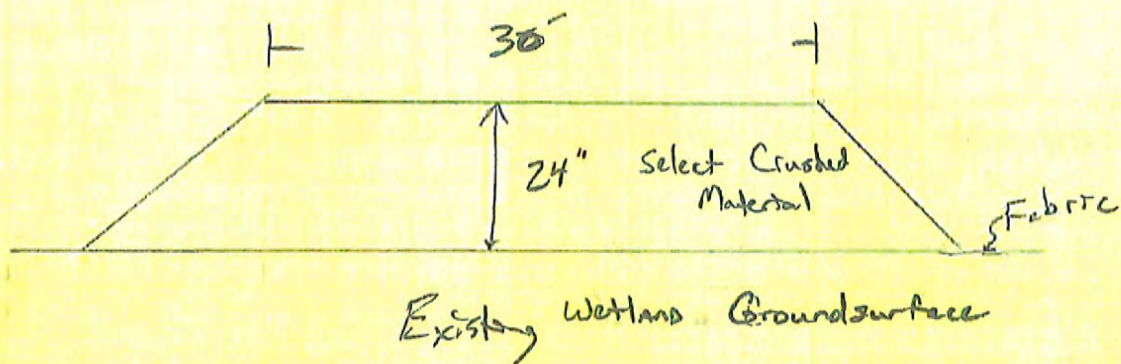 30'
24"
Select Crushed
Material
Fabric
Existing Wetland Groundsurface